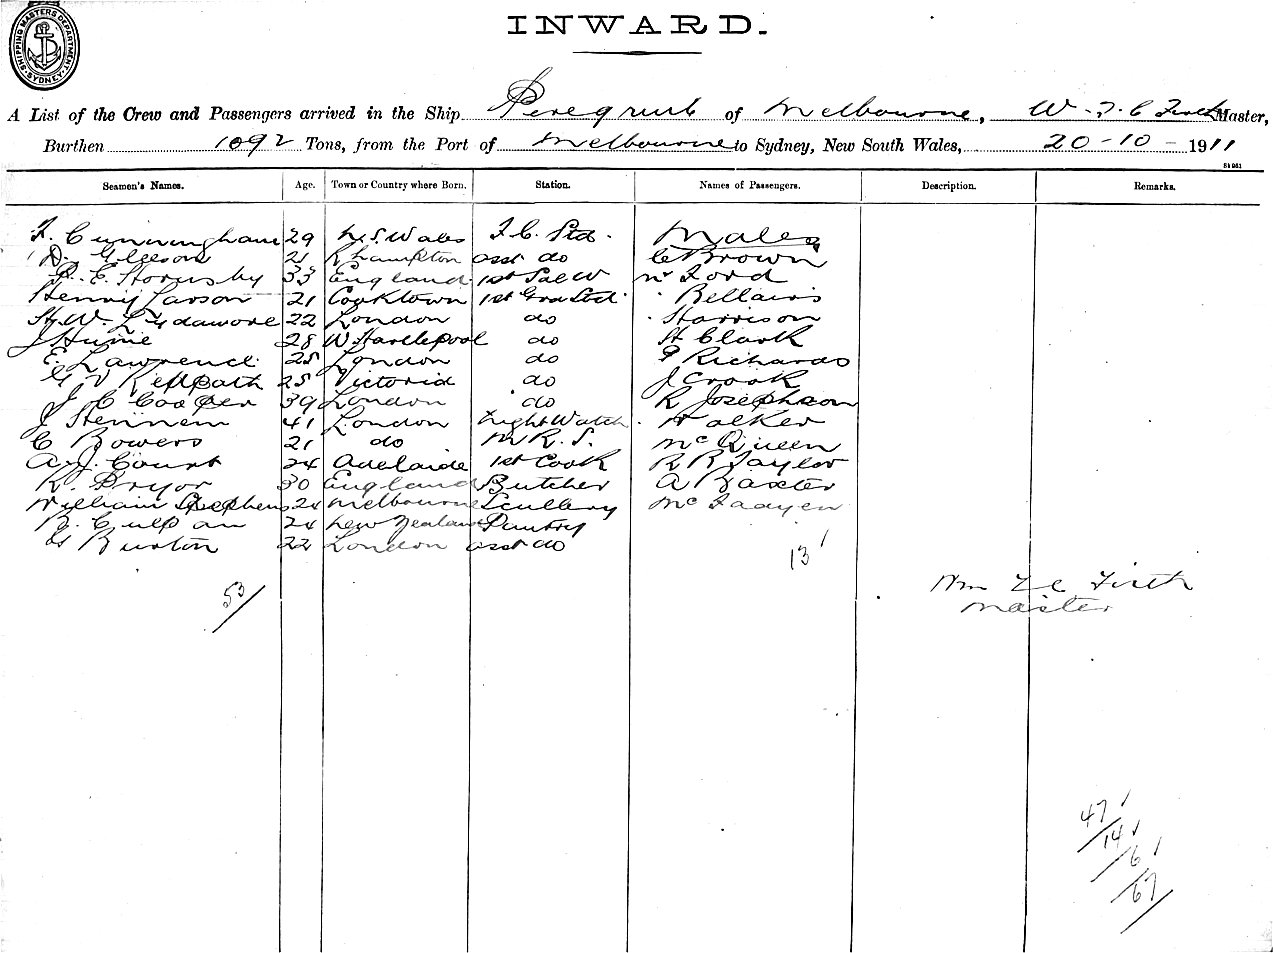 SHIPPING MASTERS DEPARTMENT SYDNEY
INWARD.
A List of the Crew and Passengers arrived in the Ship Peregrine of Melbourne, W. F. C. Firth Master,
Burthen 1092 Tons, from the Port of Melbourne to Sydney, New South Wales, 20-10-1911
Seamen's Names. Age. Town or Country where Born. Station. Names of Passengers. Description. Remarks.
F. Cunningham 29 N.S. Wales F.C. Std. Males
D. 21 R'hampton asst do C Brown
R. E. Hornsby 33 England 1st Sal W Ford
Henry Larson 21 Cooktown 1st Gra Std. Bellairs
Hy. W. Lydamore 22 London do Harrison
J Hume 28 W Hartlepool do H Clark
E. Lawrence 25 London do Richards
G V 25 Victoria do J Crook
J C Cooper 39 London do R Josephson
J 41 London Night Watch Walker
C Bowers 21 do M R. S. McQueen
A. J. Court 24 Adelaide 1st Cook R R Taylor
R. Pryor 30 England Butcher A Baxter
William Stephens 24 Melbourne Scullery
R. 24 New Zealand Pantry
G Burton 22 London asst do
13
53
Wm F C Firth
Master
47
14
6
67